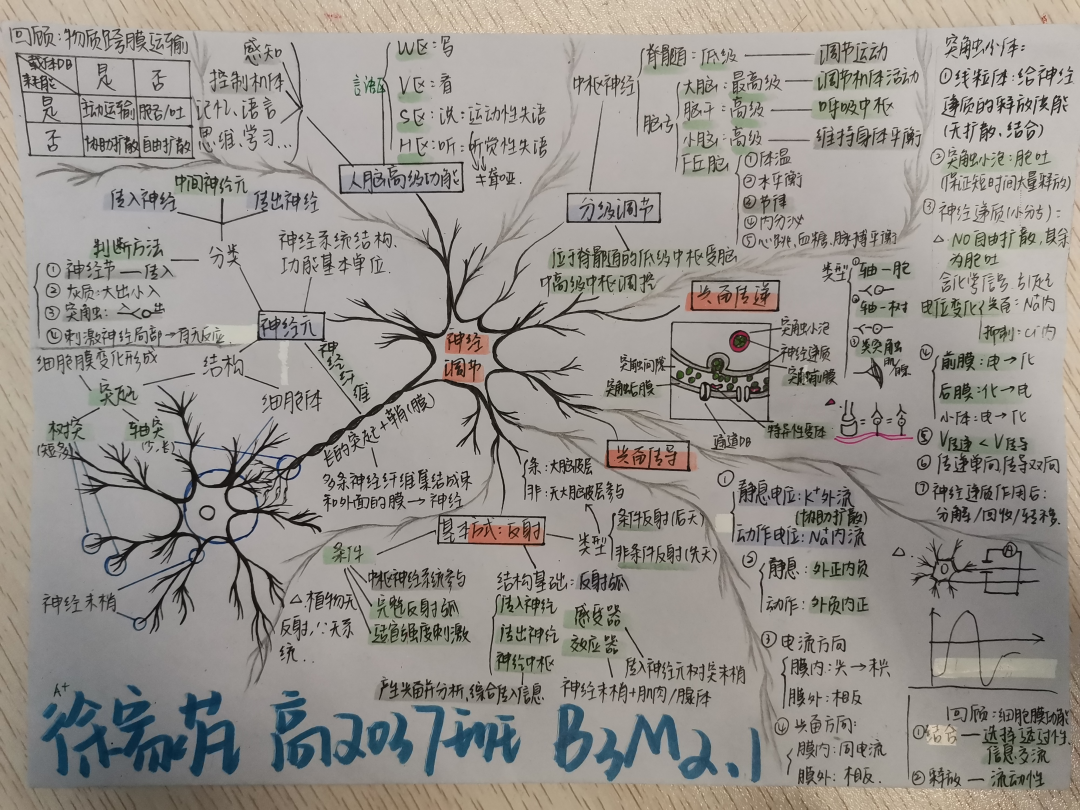 回顾:物质跨膜运输
载体DB
耗能
是
否
是
主动运输
胞吞/吐
否
协助扩散
自由扩散
感知
控制机体
记忆、语言
思维、学习...
人脑高级功能
言语区
W区:写
V区:看
S区:说:运动性失语
H区:听:听觉性失语
≠聋哑.
中枢神经
脊髓:低级——调节运动
脑
大脑:最高级——调节机体活动
脑干:高级——呼吸中枢
小脑:高级——维持身体平衡
下丘脑
①体温
②水平衡
③节律
④内分泌
⑤心跳,血糖,脉搏平衡
分级调节
位于脊髓的低级中枢受脑
中高级中枢调控
中间神经元
传入神经
传出神经
分类
判断方法
①神经节——传入
②灰质:大出小入
③突触:
④刺激神经局部→有无反应
神经系统结构、
功能基本单位.
神经元
结构
细胞膜变化形成
突起
细胞体
树突
(短多)
轴突
(少,长)
神经末梢
神经纤维
长的突起+鞘(膜)
多条神经纤维集结成束
和外面的膜→神经
神经
调节
兴奋传递
突触小泡
神经递质
突触前膜
突触间隙
突触后膜
通道DB
特异性受体
类型
①轴—胞
②轴—树
③类突触
肌/腺
兴奋传导
①
静息电位:K⁺外流
(协助扩散)
动作电位:Na⁺内流
②
静息:外正内负
动作:外负内正
③电流方向
膜内:兴→未兴
膜外:相反
④兴奋方向:
膜内:同电流
膜外:相反.
基本方式:反射
条:大脑皮层
非:无大脑皮层参与
类型
条件反射(后天)
非条件反射(先天)
条件
中枢神经系统参与
完整反射弧
适宜强度刺激
△.植物无
反射,∵无系
统...
结构基础:反射弧
传入神经
传出神经
神经中枢
感受器
效应器
传入神经元树突末梢
神经末梢+肌肉/腺体
产生兴奋并分析,综合传入信息
突触小体:
①线粒体:给神经
递质的释放供能
(无扩散、结合)
②突触小泡:胞吐
(保证短时间大量释放)
③神经递质(小分子):
△NO自由扩散,其余
为胞吐
含化学信号,引起
电位变化
兴奋:Na⁺内
抑制:Cl⁻内
④
前膜:电→化
后膜:化→电
小体:电→化
⑤V传递<V传导
⑥传递单向,传导双向
⑦神经递质作用后:
分解/回收/转移.
A
回顾:细胞膜功能
①结合—选择透过性
信息交流
②释放—流动性
A⁺
徐 萌 高2037班 B3M2.1